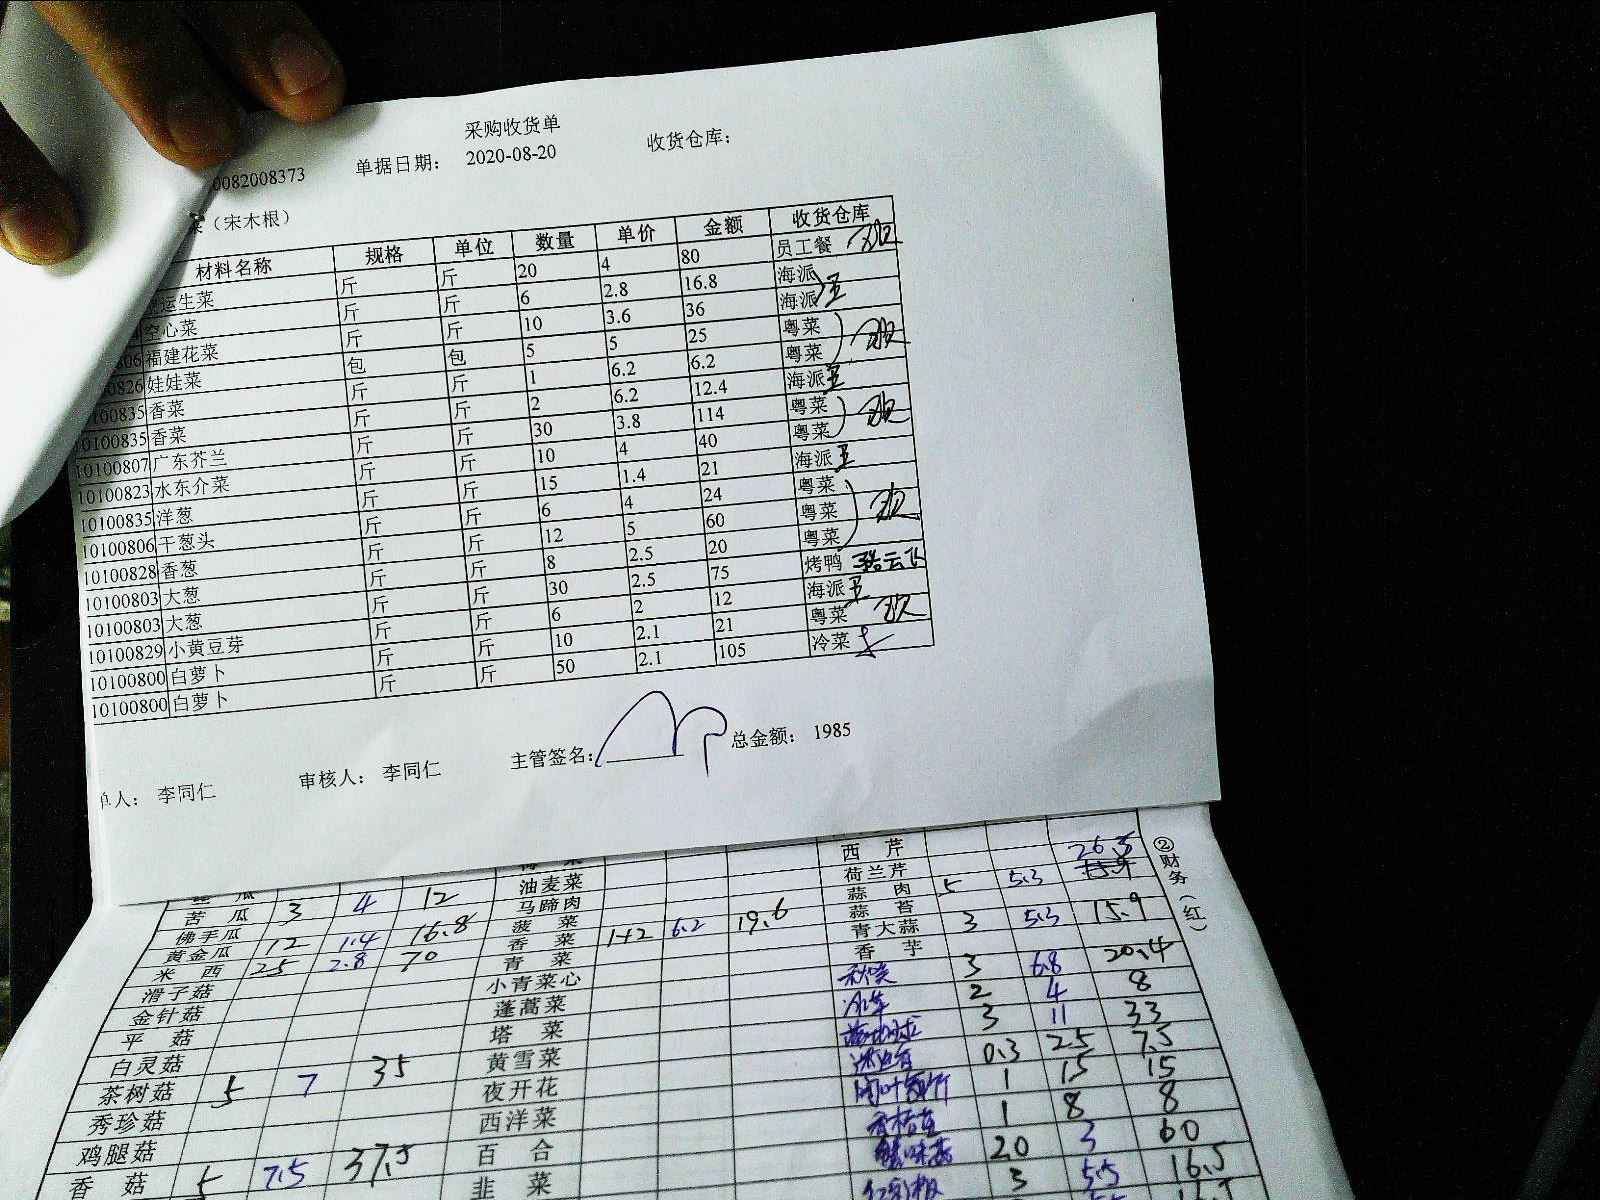 采购收货单
0082008373 单据日期： 2020-08-20 收货仓库：
（宋木根）
材料名称 规格 单位 数量 单价 金额 收货仓库
运生菜 斤 斤 20 4 80 员工餐
空心菜 斤 斤 6 2.8 16.8 海派
806 福建花菜 斤 斤 10 3.6 36 海派
0826 娃娃菜 包 包 5 5 25 粤菜
100835 香菜 斤 斤 1 6.2 6.2 粤菜
0100835 香菜 斤 斤 2 6.2 12.4 海派
10100807 广东芥兰 斤 斤 30 3.8 114 粤菜
10100823 水东介菜 斤 斤 10 4 40 粤菜
10100835 洋葱 斤 斤 15 1.4 21 海派
10100806 干葱头 斤 斤 6 4 24 粤菜
10100828 香葱 斤 斤 12 5 60 粤菜
10100803 大葱 斤 斤 8 2.5 20 粤菜
10100803 大葱 斤 斤 30 2.5 75 烤鸭
10100829 小黄豆芽 斤 斤 6 2 12 海派
10100800 白萝卜 斤 斤 10 2.1 21 粤菜
10100800 白萝卜 斤 斤 50 2.1 105 冷菜
单人： 李同仁 审核人： 李同仁 主管签名： 总金额： 1985
西芹 26.5
油麦菜 荷兰芹
苦瓜 3 4 12 马蹄肉 蒜肉 5 5.3
佛手瓜 菠菜 蒜苔
黄金瓜 12 1.4 16.8 香菜 1+2 6.2 19.6 青大蒜 3 5.3 15.9
米西 25 2.8 70 青菜 香芋
滑子菇 小青菜心 3 6.8 20.4
金针菇 蓬蒿菜 2 4 8
平菇 塔菜 3 11 33
白灵菇 黄雪菜 0.3 25 7.5
茶树菇 5 7 35 夜开花 1 15 15
秀珍菇 西洋菜 1 8 8
鸡腿菇 百合 20 3 60
香菇 5 7.5 37.5 韭菜 3 5.5 16.5
②财务（红）